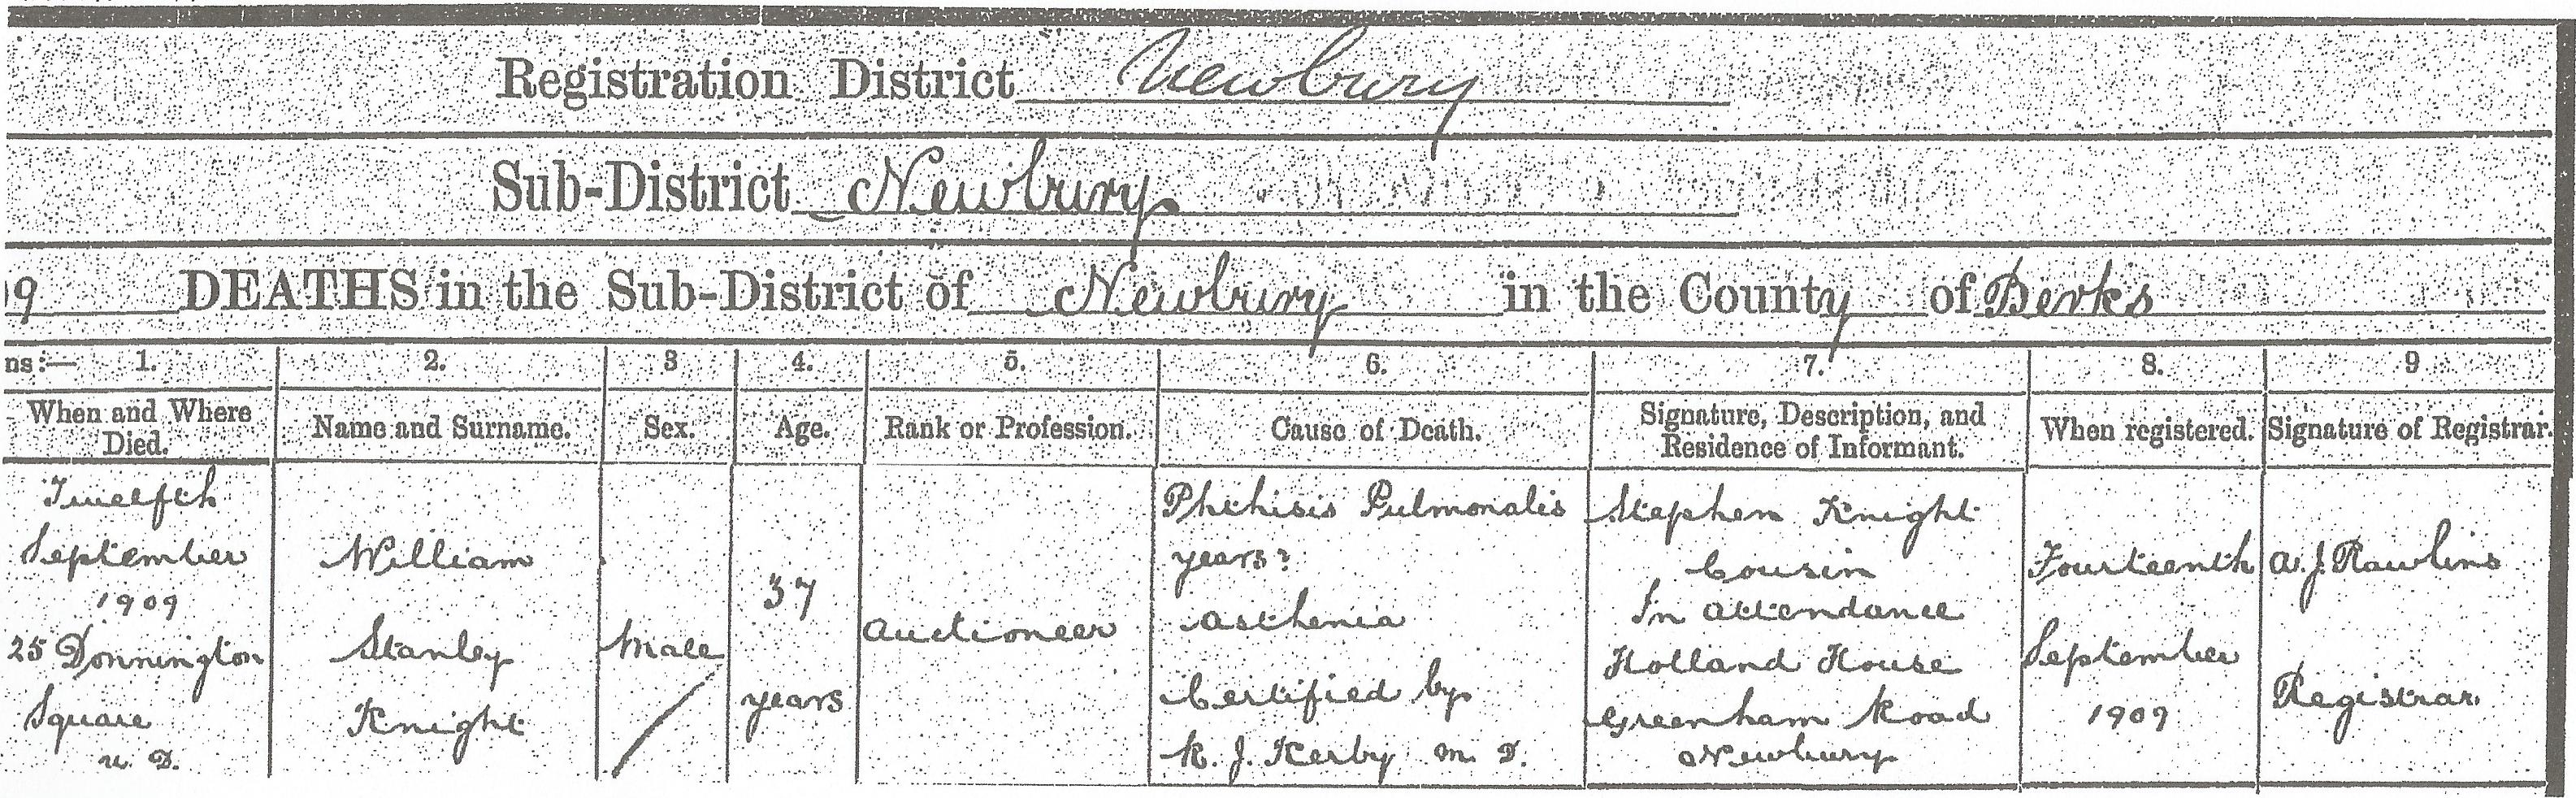 Registration District Newbury
Sub-District Newbury
9 DEATHS in the Sub-District of Newbury in the County of Berks
ns:— 1. 2. 3 4. 5. 6. 7. 8. 9
When and Where Died. Name and Surname. Sex. Age. Rank or Profession. Cause of Death. Signature, Description, and Residence of Informant. When registered. Signature of Registrar.
Twelfth
September
1909
25 Donnington
Square
U. D.
William
Stanley
Knight
Male
37
years
Auctioneer
Phthisis Pulmonalis
years?
Asthenia
Certified by
R. J. Kerby M. D.
Stephen Knight
Cousin
In attendance
Holland House
Greenham Road
Newbury
Fourteenth
September
1909
A. J. Rawlins
Registrar.